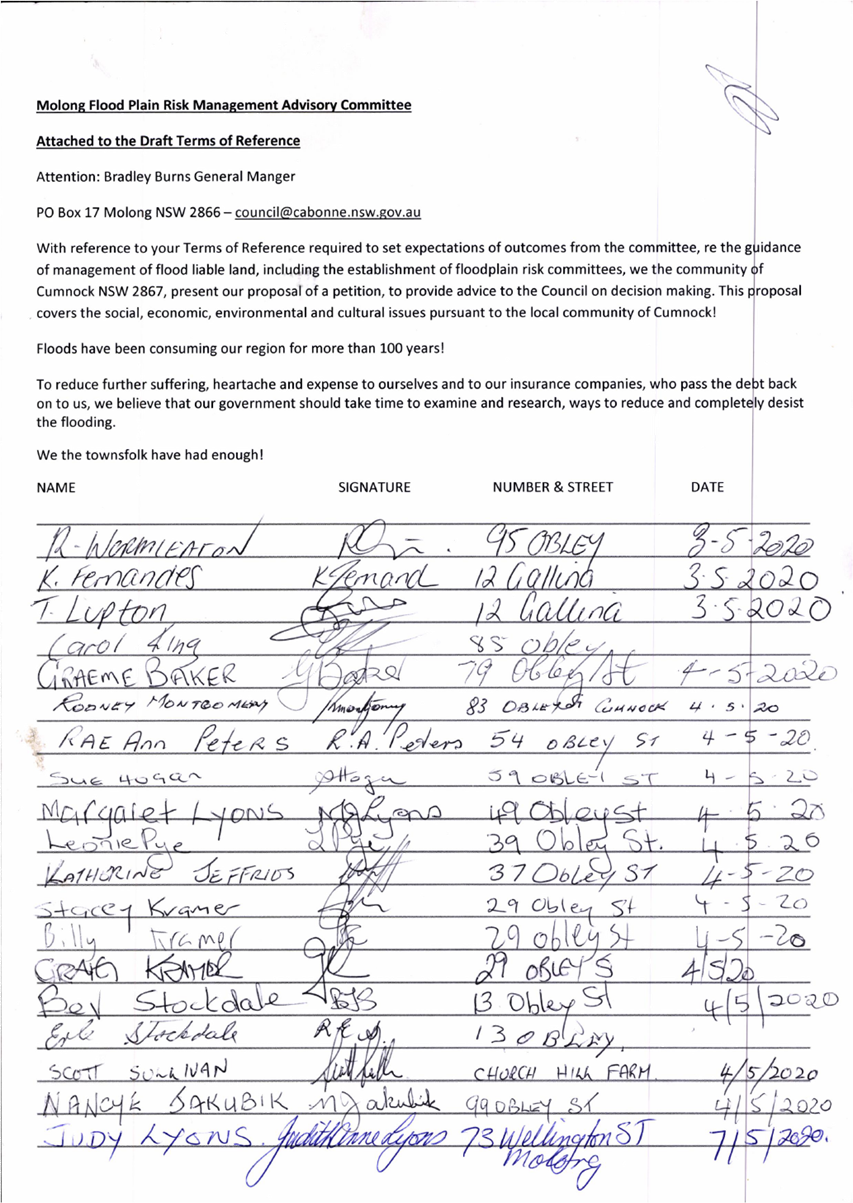 Molong Flood Plain Risk Management Advisory Committee
Attached to the Draft Terms of Reference
Attention: Bradley Burns General Manger
PO Box 17 Molong NSW 2866 – council@cabonne.nsw.gov.au
With reference to your Terms of Reference required to set expectations of outcomes from the committee, re the guidance
of management of flood liable land, including the establishment of floodplain risk committees, we the community of
Cumnock NSW 2867, present our proposal of a petition, to provide advice to the Council on decision making. This proposal
covers the social, economic, environmental and cultural issues pursuant to the local community of Cumnock!
Floods have been consuming our region for more than 100 years!
To reduce further suffering, heartache and expense to ourselves and to our insurance companies, who pass the debt back
on to us, we believe that our government should take time to examine and research, ways to reduce and completely desist
the flooding.
We the townsfolk have had enough!
NAME SIGNATURE NUMBER & STREET DATE
R-WORMLEATON 95 OBLEY 3-5-2020
K. Fernandes 12 Gallina 3.5.2020
T. Lupton 12 Gallina 3.5.2020
Carol King 85 Obley
GRAEME BAKER G Baker 79 Obley St 4-5-2020
RODNEY MONTGOMERY 83 OBLEY ST CUMNOCK 4.5.20
RAE Ann Peters R.A. Peters 54 OBLEY ST 4-5-20
SUE HOGAN 59 OBLEY ST 4-5-20
Margaret Lyons MJ Lyons 49 Obley St 4.5.20
Leonie Pye L Pye 39 Obley St. 4.5.20
KATHERINE JEFFRIES 37 Obley ST 4-5-20
Stacey Kramer 29 Obley St 4-5-20
Billy Kramer 29 obley st 4-5-20
CRAIG KRAMER 29 OBLEY S 4/5/20
Bev Stockdale BJS 13 Obley St 4/5/2020
Stockdale 13 OBLEY.
SCOTT SULLIVAN CHURCH HILL FARM. 4/5/2020
NANCYE JAKUBIK NJakubik 99 OBLEY ST 4/5/2020
JUDY LYONS. Judith Anne Lyons 73 Wellington ST 7/5/2020.
Molong